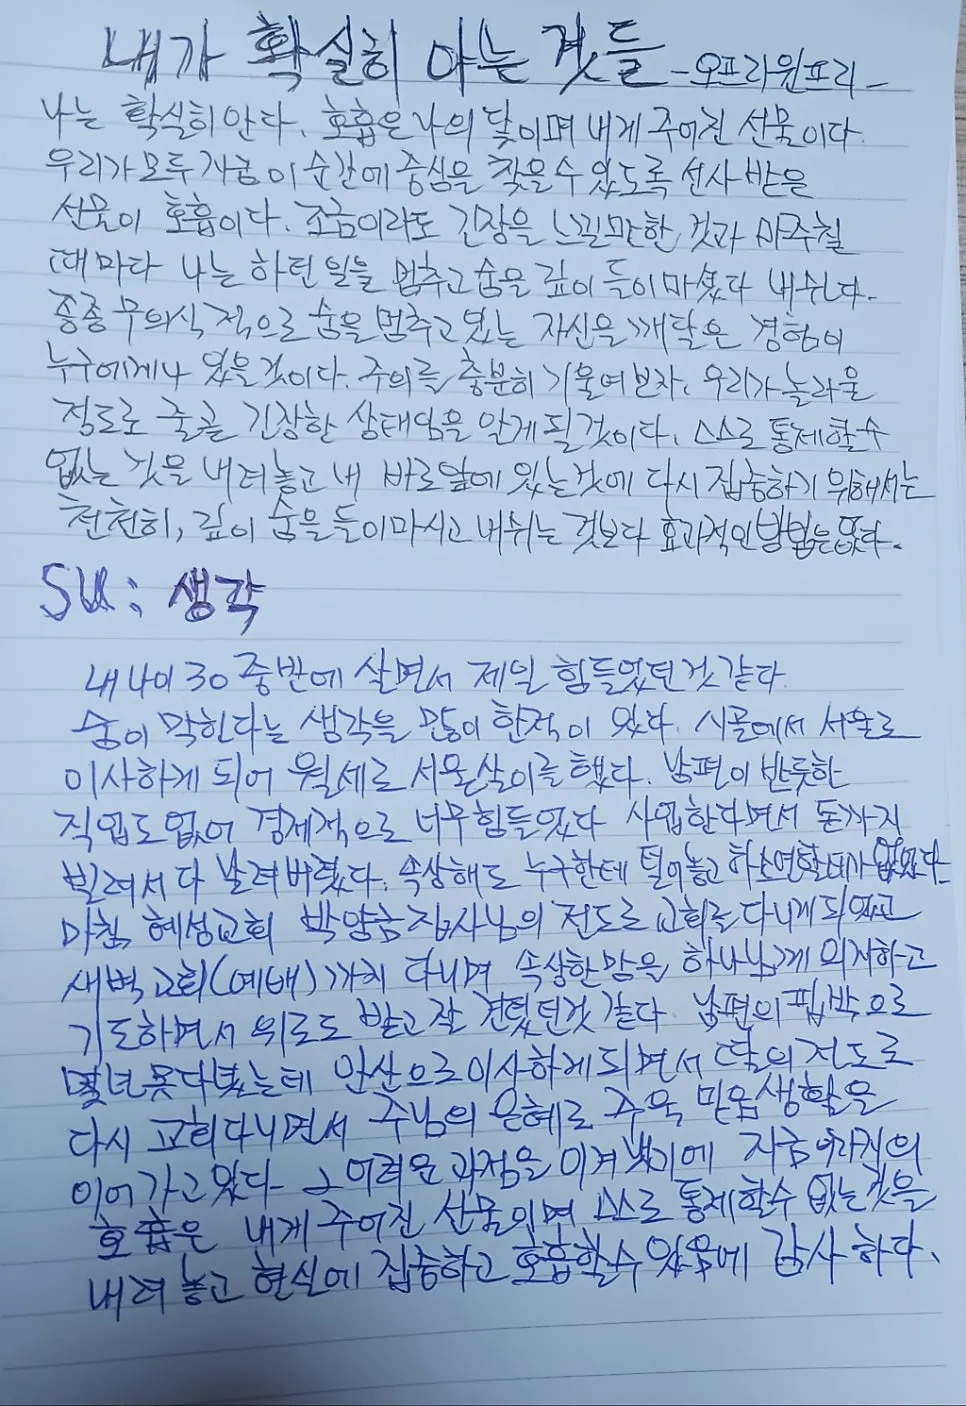 내가 확실히 아는 것들 -오프라윈프리-
나는 확실히 안다. 호흡은 나의 닻이며 내게 주어진 선물이다.
우리가 모두 지금 이 순간에 중심을 찾을 수 있도록 선사 받은
선물이 호흡이다. 조금이라도 긴장을 느낄만한 것과 마주칠
때마다 나는 하던 일을 멈추고 숨을 깊이 들이마셨다 내쉰다.
종종 무의식적으로 숨을 멈추고 있는 자신을 깨달은 경험이
누구에게나 있을 것이다. 주의를 충분히 기울여 보자. 우리가 놀라울
정도로 줄곧 긴장한 상태임을 알게 될 것이다. 스스로 통제할 수
없는 것을 내려놓고 내 바로 앞에 있는 것에 다시 집중하기 위해서는
천천히, 깊이 숨을 들이마시고 내쉬는 것보다 효과적인 방법은 없다.
SU: 생각
내 나이 30 중반에 살면서 제일 힘들었던 것 같다.
숨이 막힌다는 생각을 많이 한적이 있다. 시골에서 서울로
이사하게 되어 월세로 서울살이를 했다. 남편이 반듯한
직업도 없어 경제적으로 너무 힘들었다 사업한다면서 돈까지
빌려서 다 날려버렸다. 속상해도 누구한테 털어놓고 하소연할데가 없었다
마침 혜성교회 박양금 집사님의 전도로 교회를 다니게 되었고
새벽 교회(예배)까지 다니며 속상한 맘을 하나님께 의지하고
기도하면서 위로도 받고 잘 견뎠던것 같다. 남편의 핍박으로
몇년 못다녔는데 안산으로 이사하게 되면서 딸의 전도로
다시 교회다니면서 주님의 은혜로 주욱 믿음생활을
이어가고 있다. 그 어려운 과정을 이겨냈기에 지금 여기의
호흡은 내게 주어진 선물이며 스스로 통제할수 없는 것을
내려 놓고 현실에 집중하고 호흡할수 있음에 감사하다.